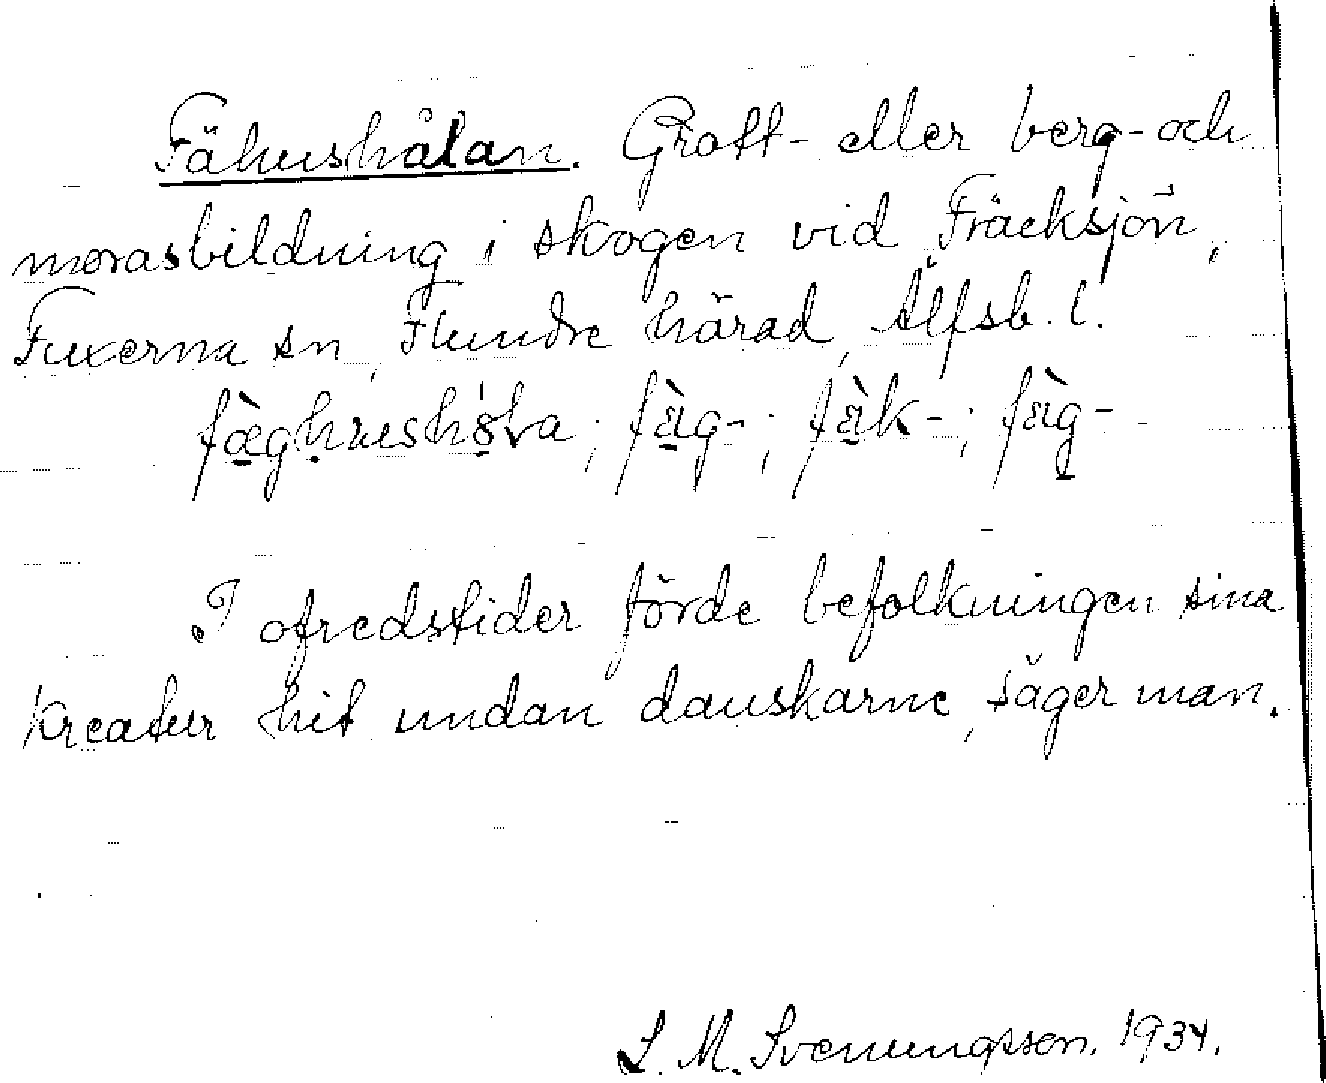 Fähushålan. Grott- eller berg- och
morasbildning i skogen vid Fräcksjön,
Fuxerna sn, Flundre härad, Älfsb. l.
fæ̀ghushåla; fæ̀g-; fæ̀k-; fäg-
I ofredstider förde befolkningen sina
kreatur hit undan danskarne, säger man.
L. M. Svenungsson. 1934.